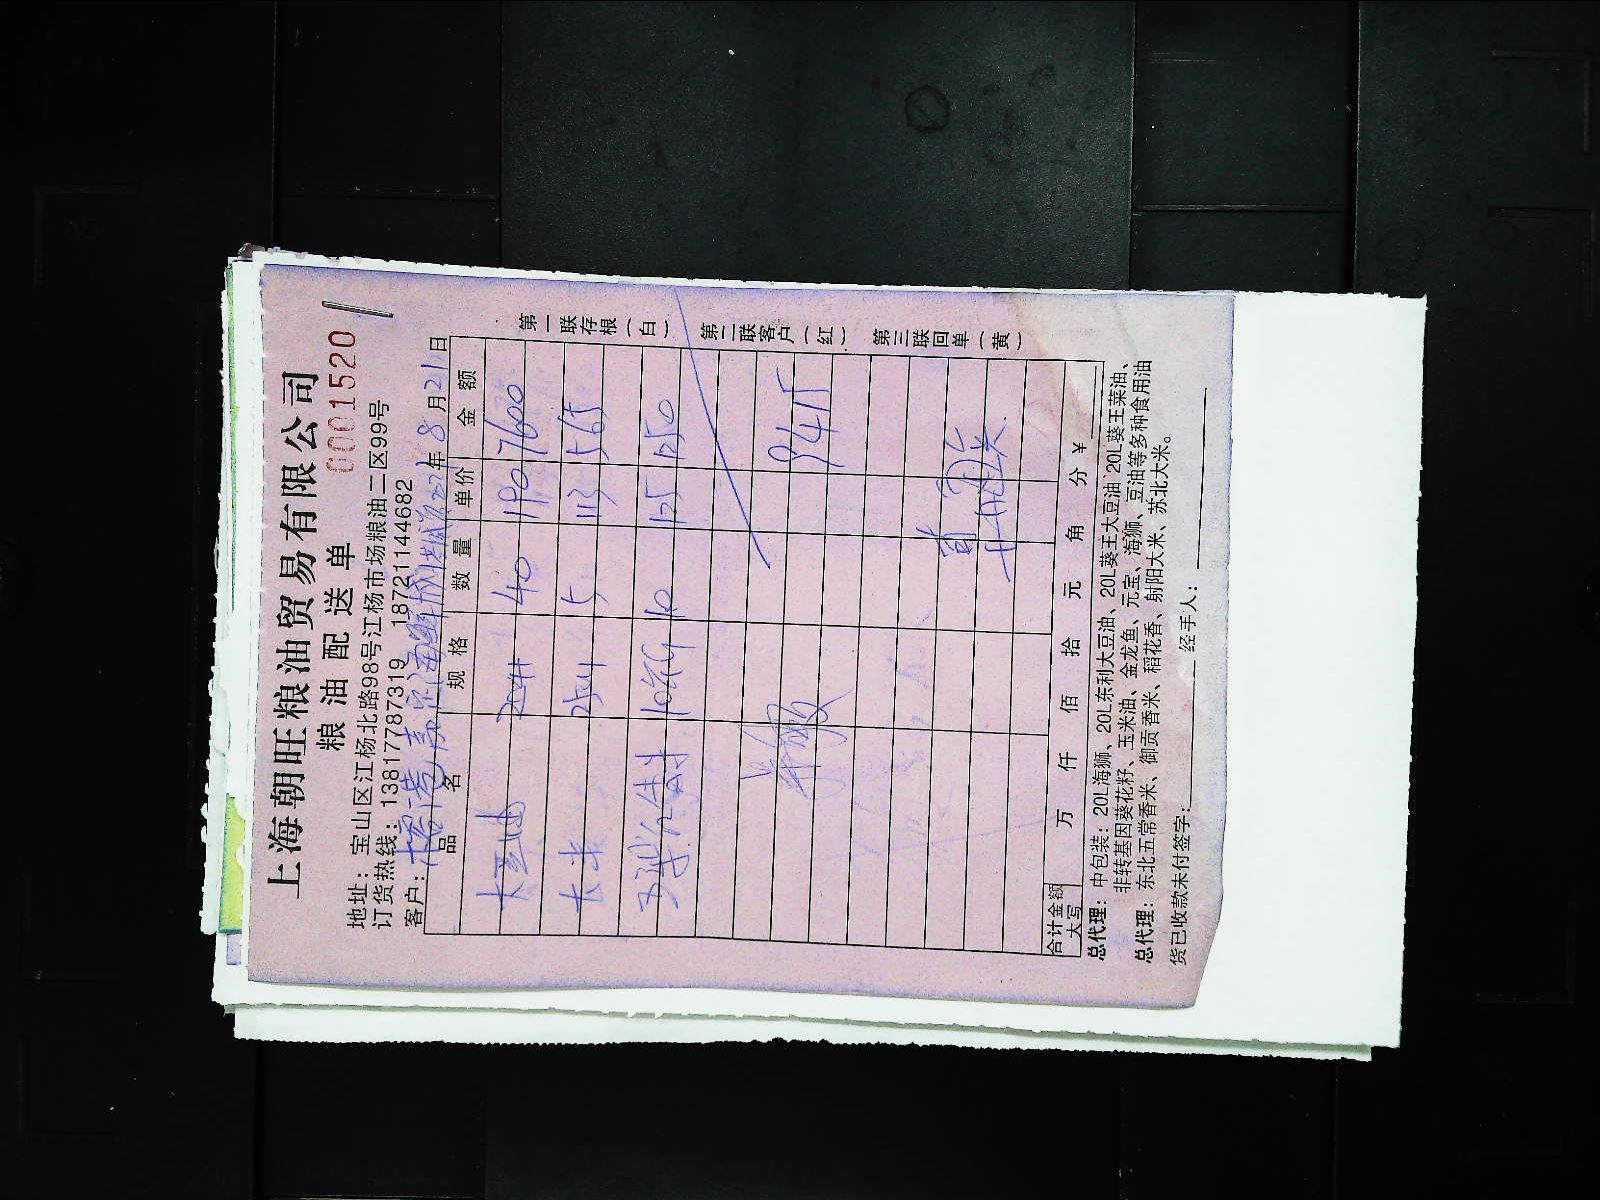 上海朝旺粮油贸易有限公司
粮油配送单 0001520
地址：宝山区江杨北路98号江杨市场粮油二区99号
订货热线：13817787319 18721144682
客户： 年8月21日
品名 规格 数量 单价 金额
大豆油 20升 40 190 7600
大米 5 113 565
10 125 1250
9415
合计金额大写 万 仟 佰 拾 元 角 分 ¥
总代理：中包装：20L海狮、20L东利大豆油、20L葵王大豆油 20L葵王菜油、
非转基因葵花籽、玉米油、金龙鱼、元宝、海狮、豆油等多种食用油
总代理：东北五常香米、御贡香米、稻花香、射阳大米、苏北大米。
货已收款未付签字： 经手人：
第一联存根（白） 第二联客户（红） 第三联回单（黄）